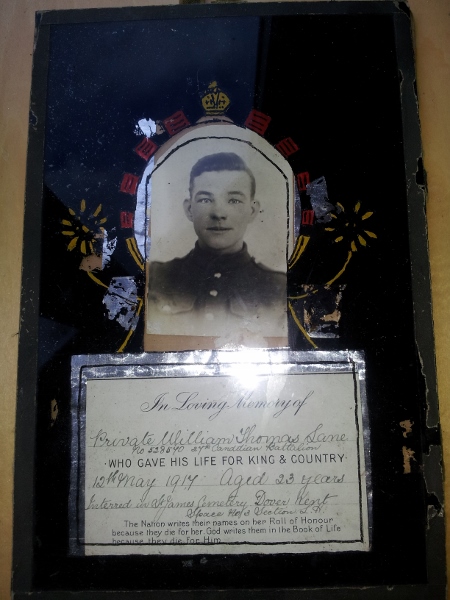 In Loving Memory of
Private William Thomas Lane
No 529540 27th Canadian Battalion
WHO GAVE HIS LIFE FOR KING & COUNTRY
12th May 1917 Aged 23 years
Interred in St James Cemetery Dover Kent
Section
The Nation writes their names on her Roll of Honour
because they die for her God writes them in the Book of Life
because they die for Him